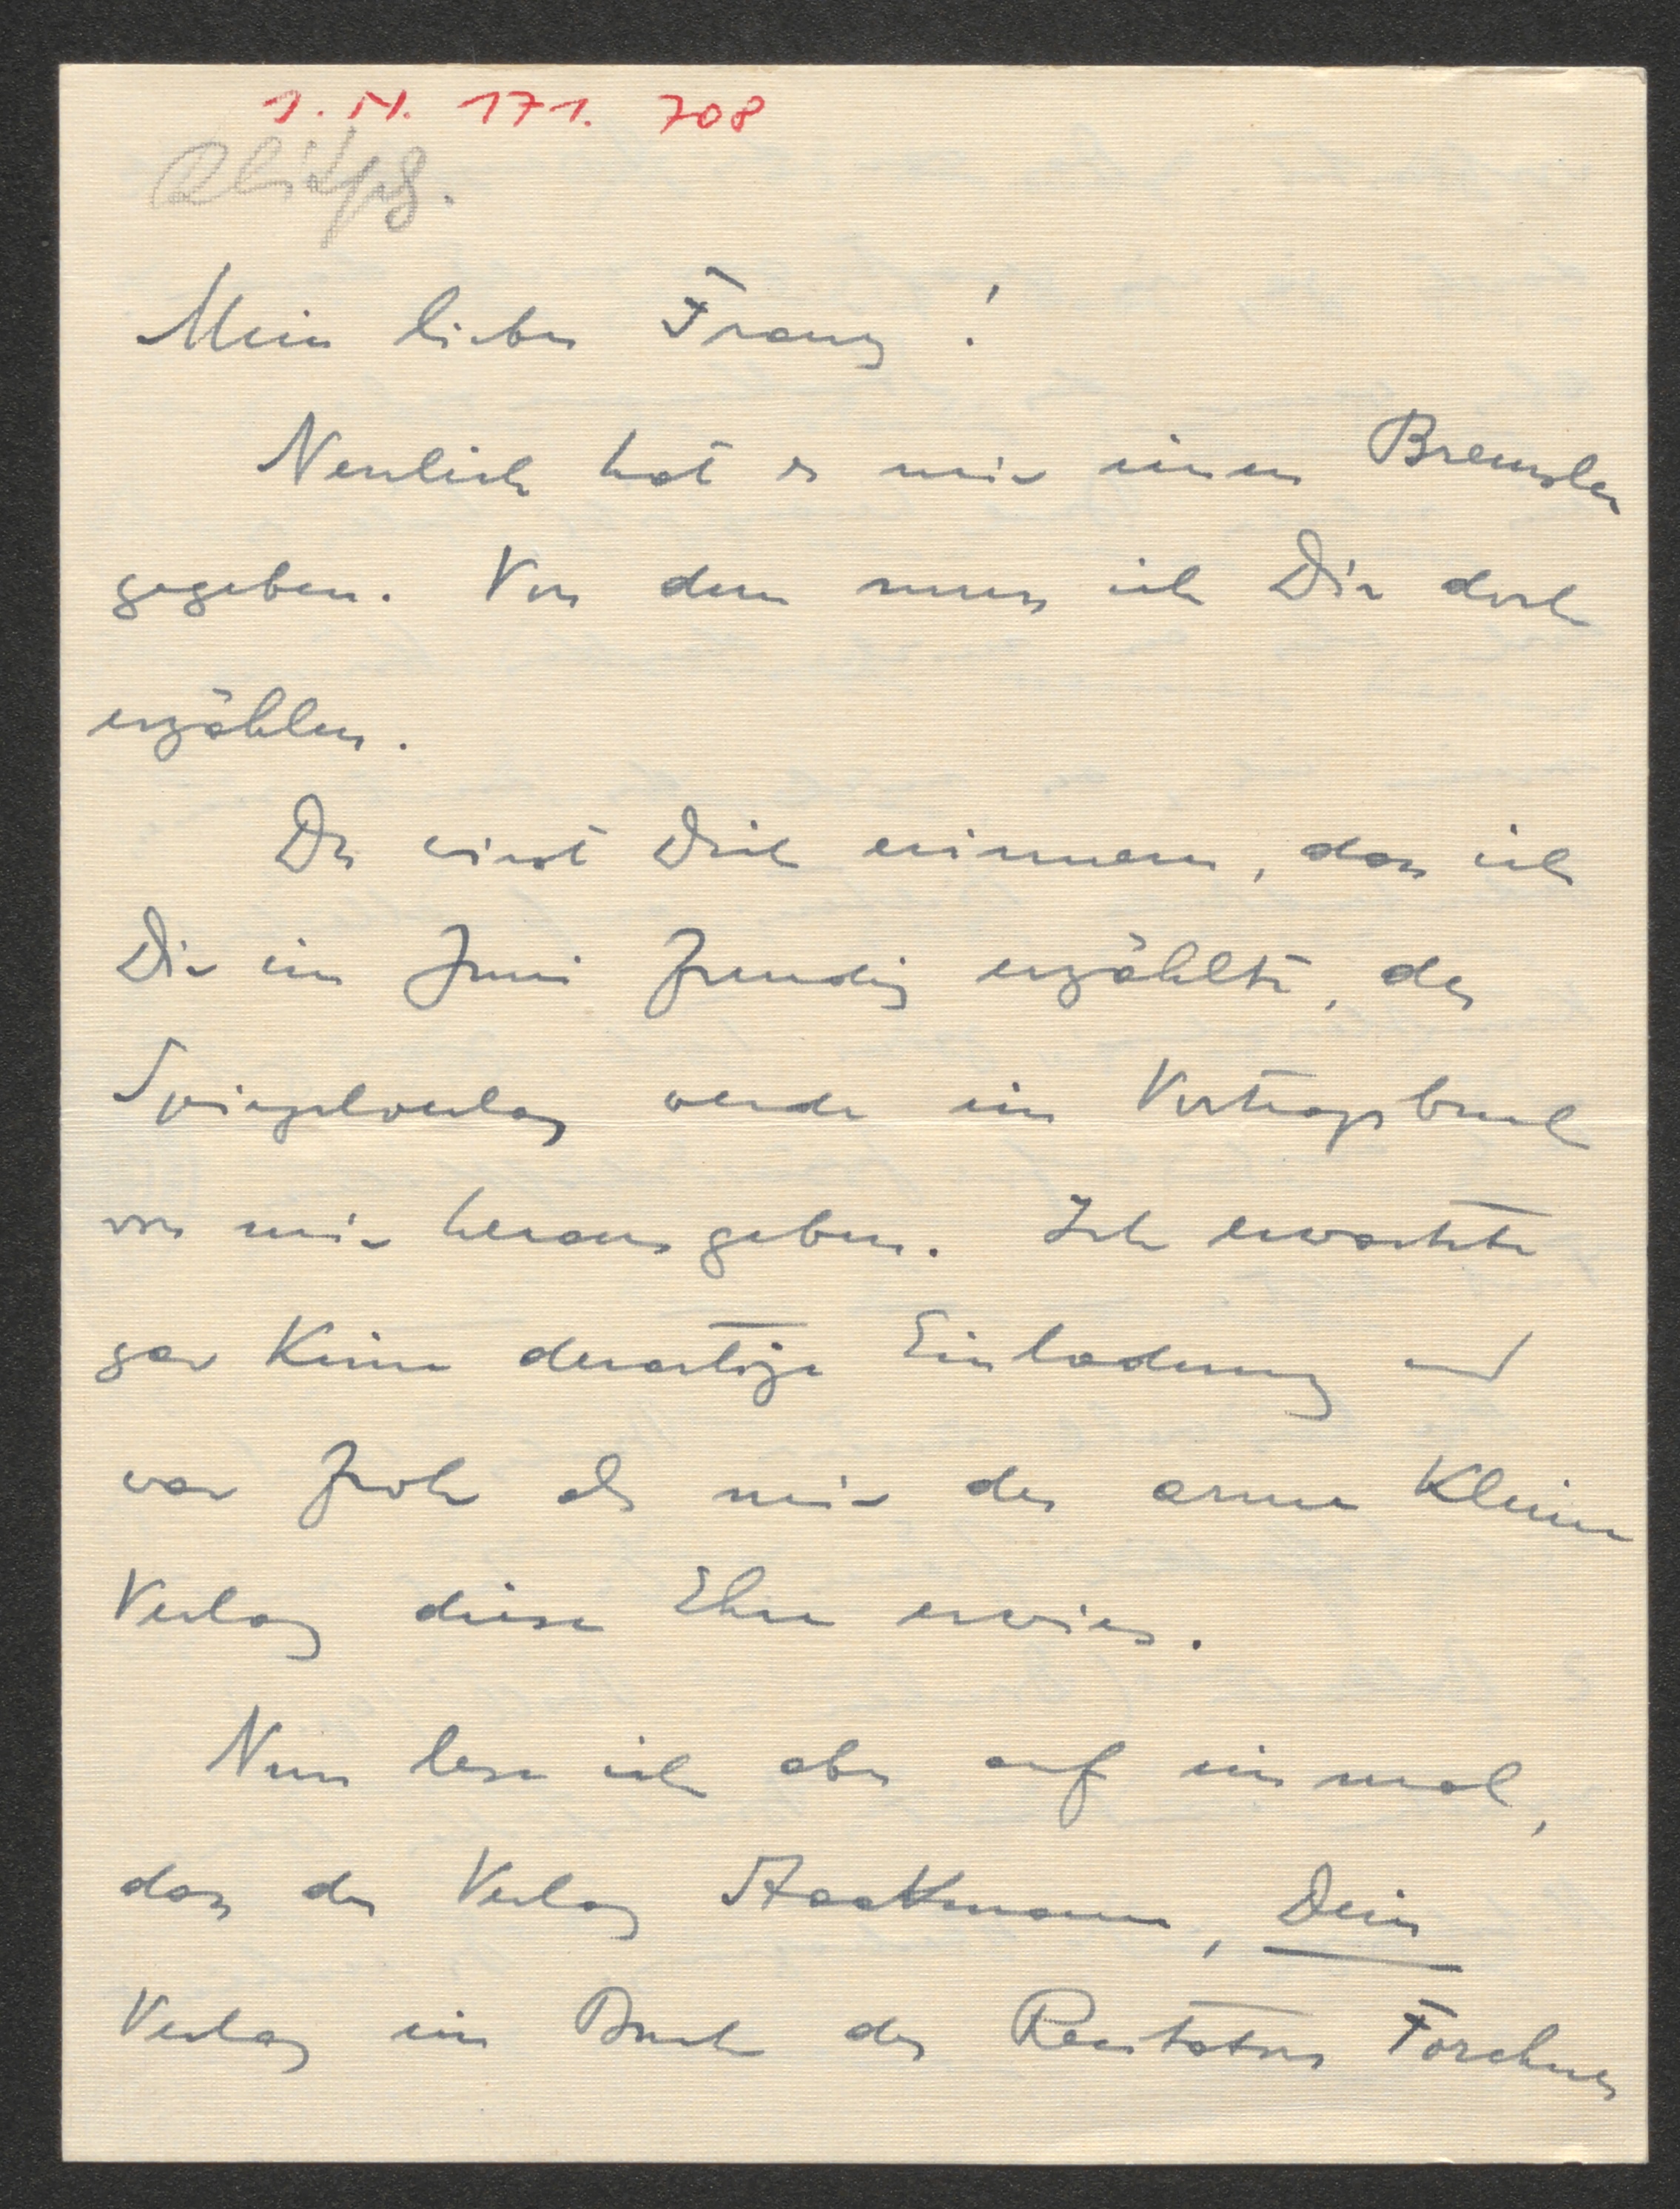 1. N. 171. 708
Mein lieber Franz!
Neulich hat es mir einen Bremsler
gegeben. Von dem muss ich Dir doch
erzählen.
Du wirst Dich erinnern, dass ich
Dir im Juni freudig erzählte, der
Spiegelverlag werde ein Vortragsbuch
von mir herausgeben. Ich erwartete
gar keine derartige Einladung und
war froh als mir der arme kleine
Verlag diese Ehre erwies.
Nun lese ich aber auf einmal,
dass der Verlag Staackmann, Dein
Verlag ein Buch des Rezitators Forchner